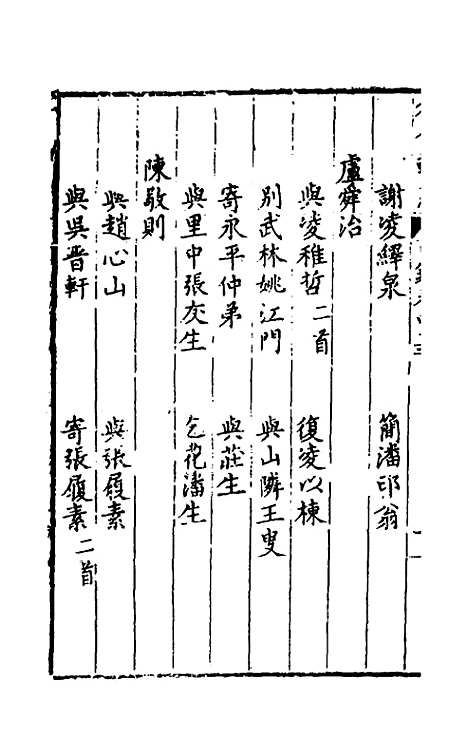 謝凌繹泉　簡潘邛翁
盧舜治
與凌稚哲二首　復凌以棟
別武林姚江門　與山隣王叟
寄永平仲弟　與莊生
與里中張友生　乞花潘生
陳敬則
與趙心山　與張履素
與吳晋軒　寄張履素二首